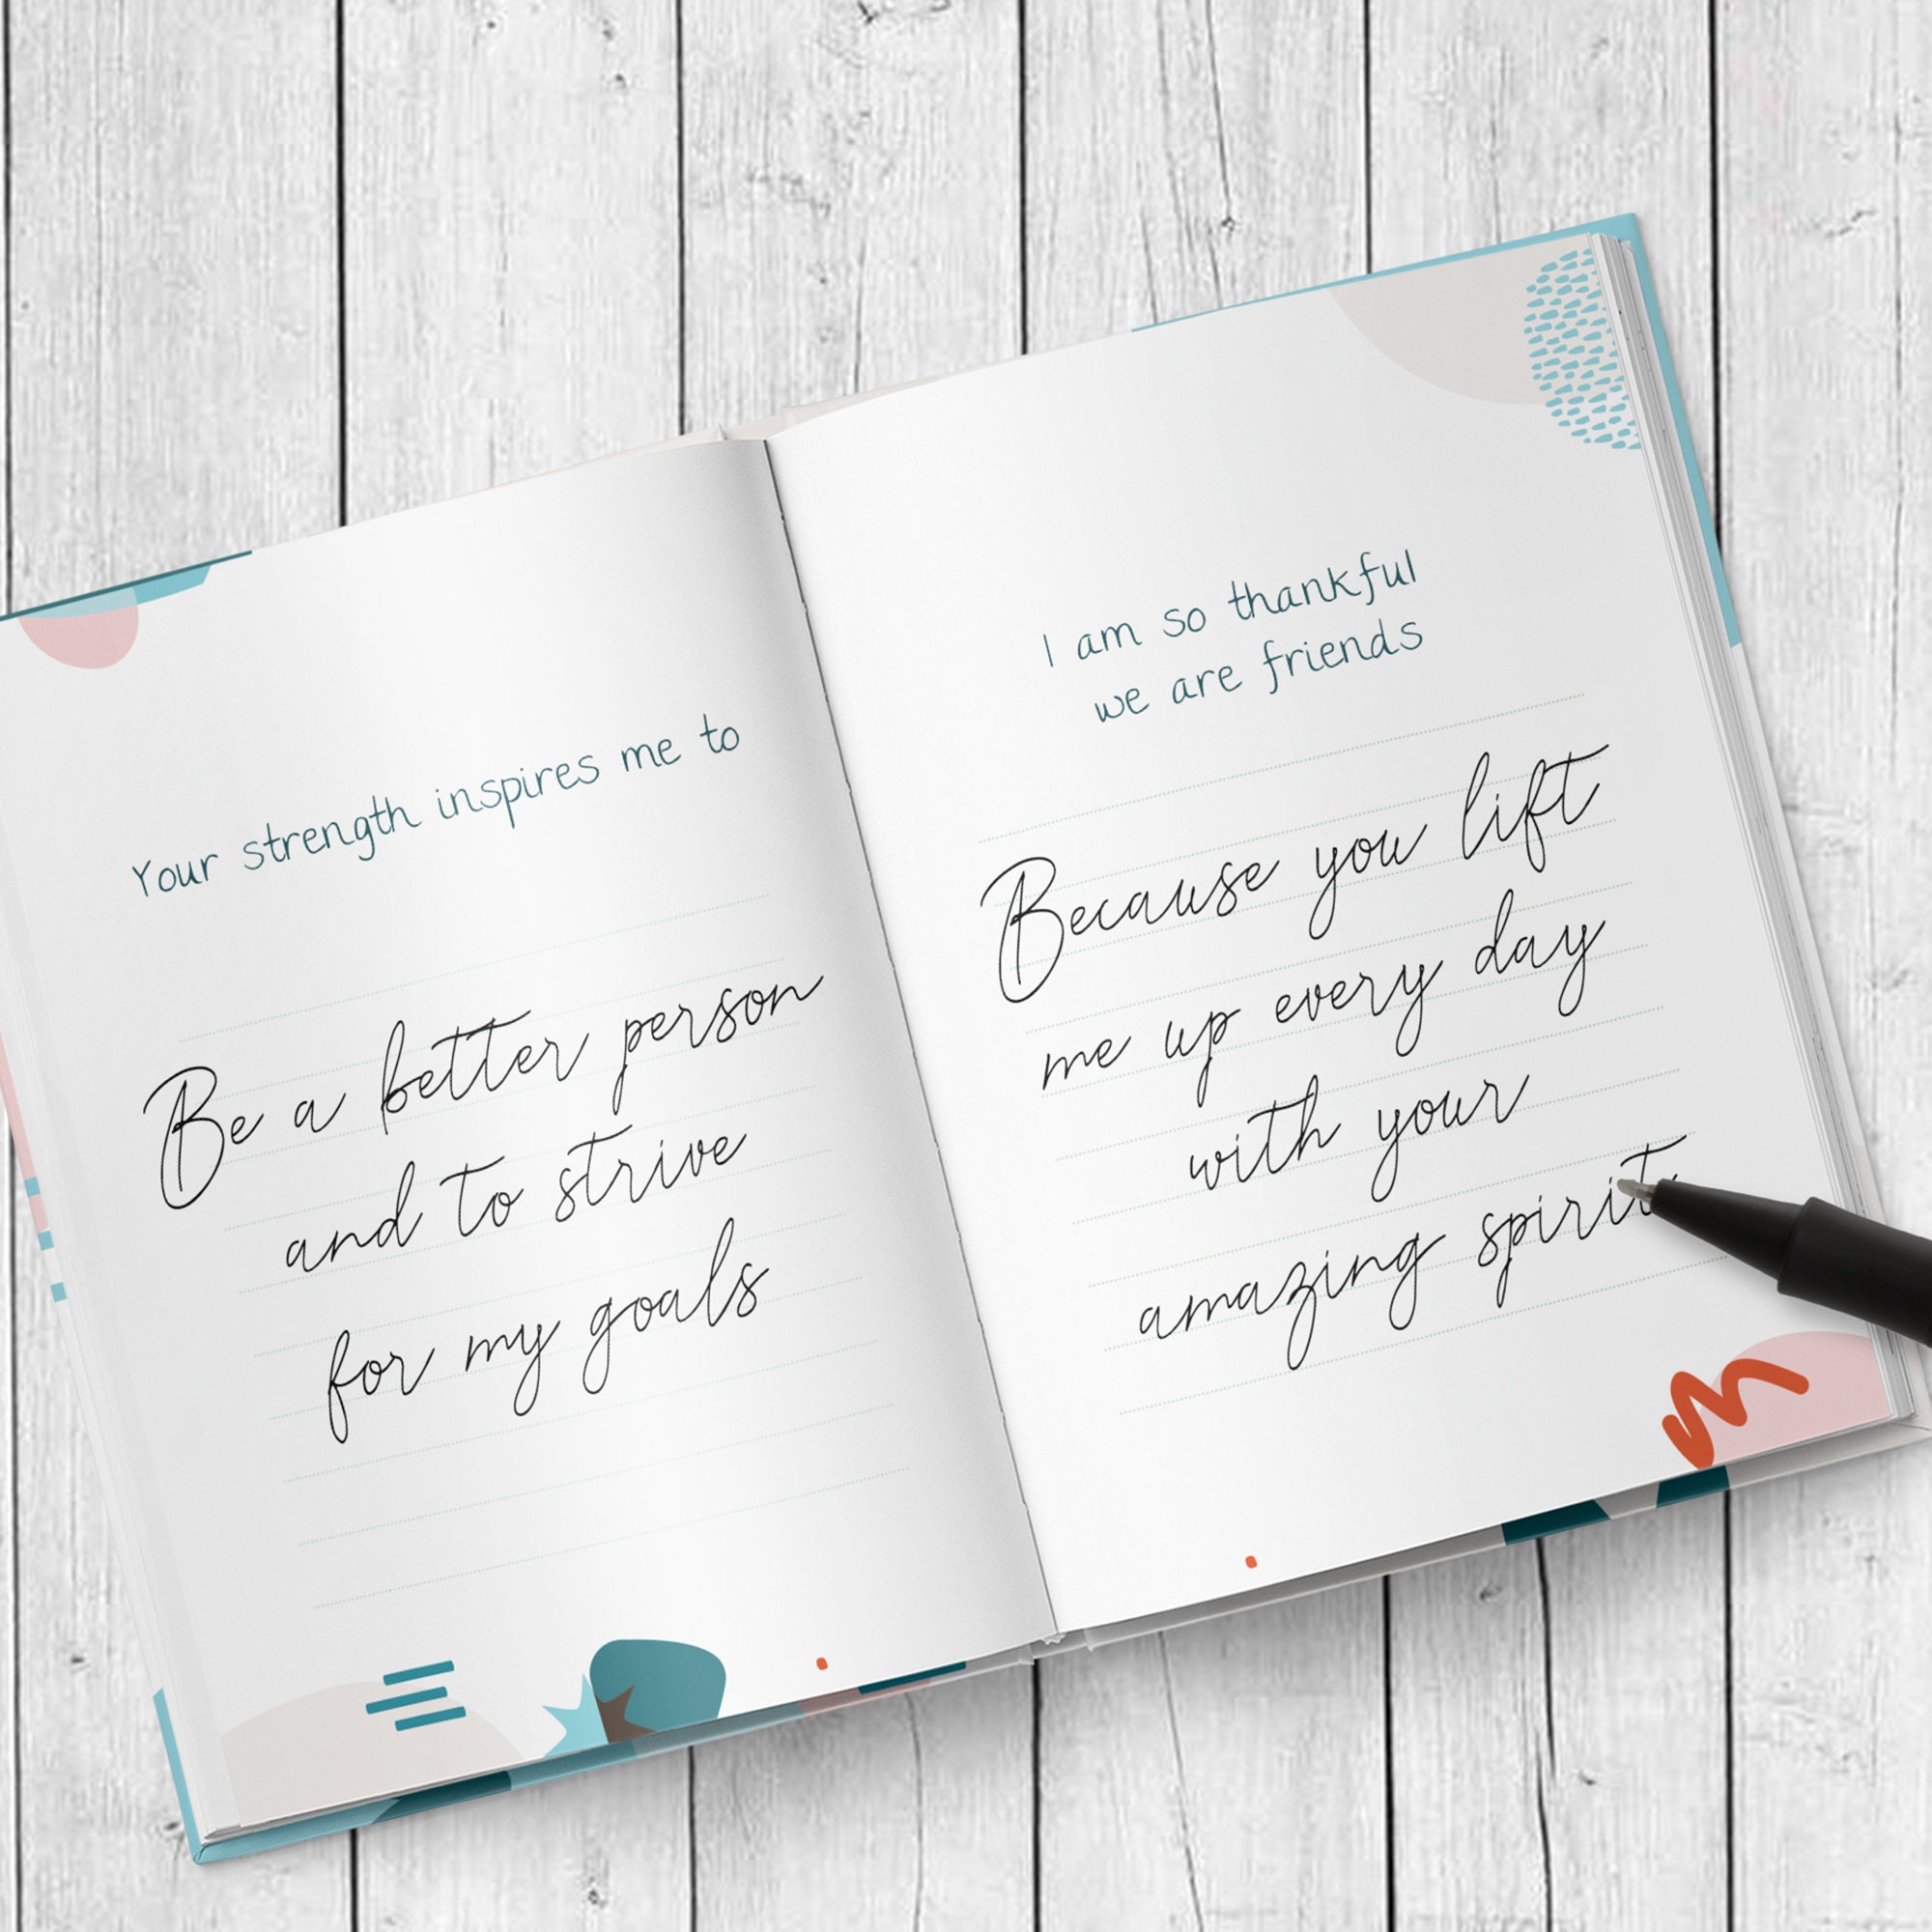 Your strength inspires me to
Be a better person
and to strive
for my goals
I am so thankful
we are friends
Because you lift
me up every day
with your
amazing spirit